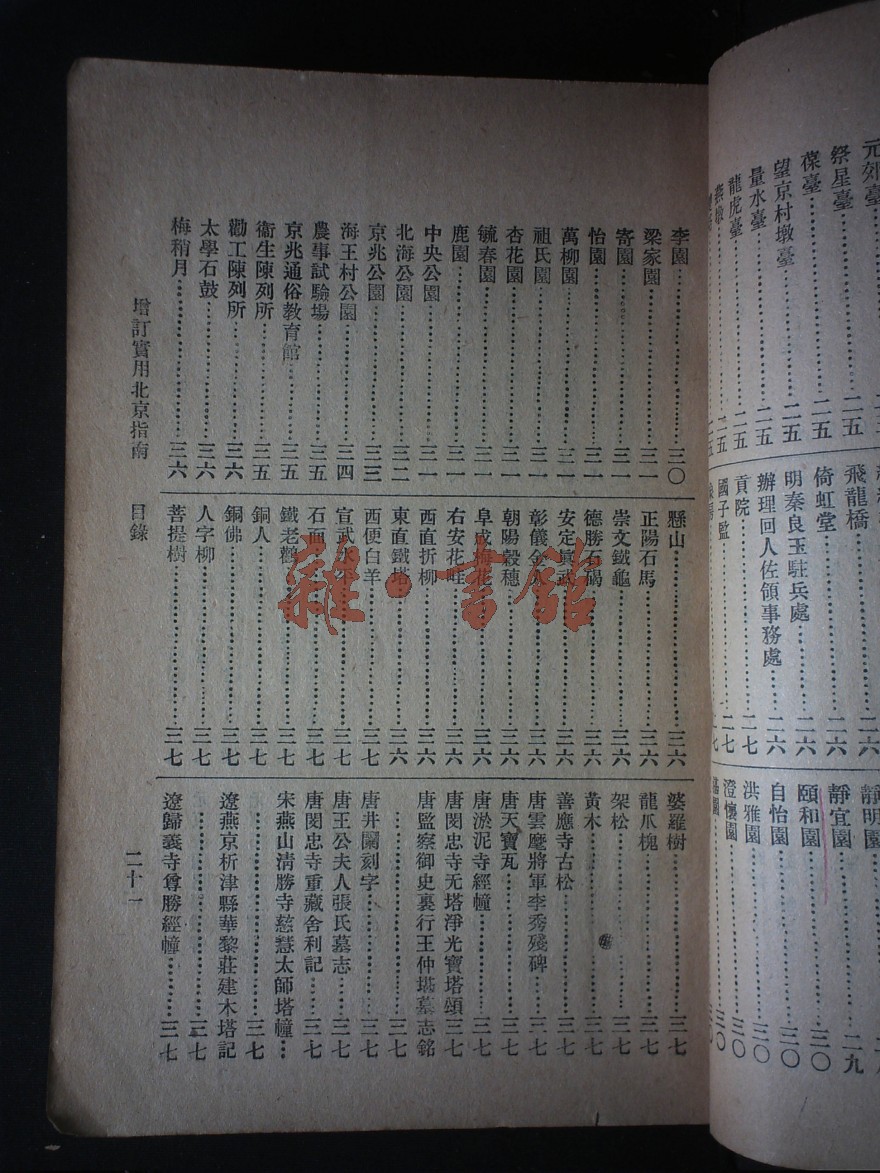 元郊臺
祭星臺……二五
葆臺……二五
望京村墩臺……二五
量水臺……二五
龍虎臺……二五
飛龍橋……二六
倚虹堂……二六
明秦良玉駐兵處……二六
辦理回人佐領事務處……二六
貢院……二七
國子監……二七
靜明園
靜宜園……二九
頤和園……三〇
自怡園……三〇
洪雅園……三〇
澄懷園……三〇
李園……三〇
梁家園……三一
寄園……三一
怡園……三一
萬柳園……三一
祖氏園……三一
杏花園……三一
毓春園……三一
鹿園……三一
中央公園……三一
北海公園……三二
京兆公園……三三
海王村公園……三四
農事試驗場……三五
京兆通俗教育館……三五
衞生陳列所……三五
勸工陳列所……三六
太學石鼓……三六
梅稍月……三六
懸山……三六
正陽石馬……三六
崇文鐵龜……三六
德勝石碣……三六
安定眞武……三六
彰儀金人……三六
朝陽穀穗……三六
阜成梅花……三六
右安花畦……三六
西直折柳……三六
東直鐵塔……三六
西便白羊……三七
宣武水平……三七
石面……三七
鐵老鸛……三七
銅人……三七
銅佛……三七
人字柳……三七
菩提樹……三七
娑羅樹……三七
龍爪槐……三七
架松……三七
黃木……三七
善應寺古松……三七
唐雲麾將軍李秀殘碑……三七
唐天寶瓦……三七
唐淤泥寺經幢……三七
唐閔忠寺无塔淨光寶塔頌……三七
唐監察御史裏行王仲堪墓志銘
……三七
唐井闌刻字……三七
唐王公夫人張氏墓志……三七
唐閔忠寺重藏舍利記……三七
宋燕山清勝寺慈慧太師塔幢…
……三七
遼燕京析津縣華黎莊建木塔記
……三七
遼歸義寺尊勝經幢……三七
增訂實用北京指南 目錄 二十一
雜·書館